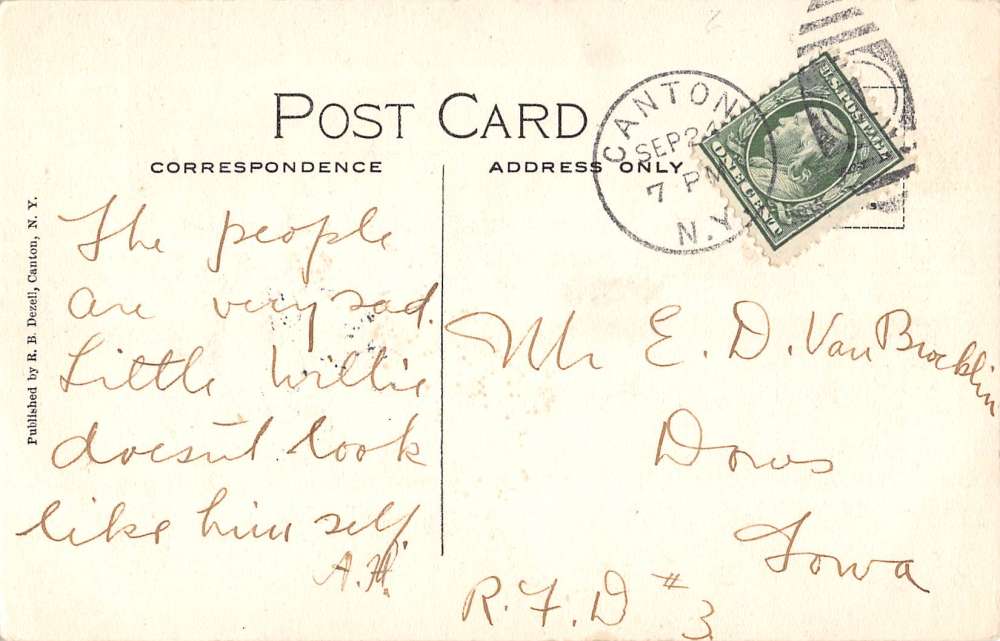 POST CARD
CORRESPONDENCE
ADDRESS ONLY
CANTON
SEP 2
7 PM
N.Y.
U.S. POSTAGE
ONE CENT
Published by R. B. Dezell, Canton, N. Y.
The people
are very sad.
Little Willie
doesn't look
like him self.
A.H.
Mr E. D. Van Brocklin
Dows
Iowa
R.F.D #3